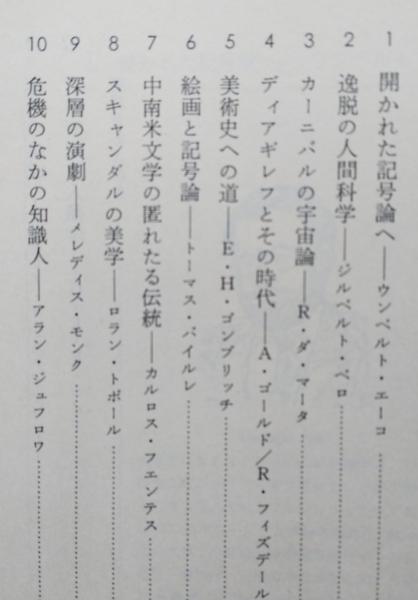 1 開かれた記号論へ——ウンベルト・エーコ
2 逸脱の人間科学——ジルベルト・ペロ
3 カーニバルの宇宙論——R・ダ・マータ
4 ディアギレフとその時代——A・ゴールド/R・フィズデール
5 美術史への道——E・H・ゴンブリッチ
6 絵画と記号論——トーマス・バイルレ
7 中南米文学の匿れたる伝統——カルロス・フエンテス
8 スキャンダルの美学——ロラン・トポール
9 深層の演劇——メレディス・モンク
10 危機のなかの知識人——アラン・ジュフロワ